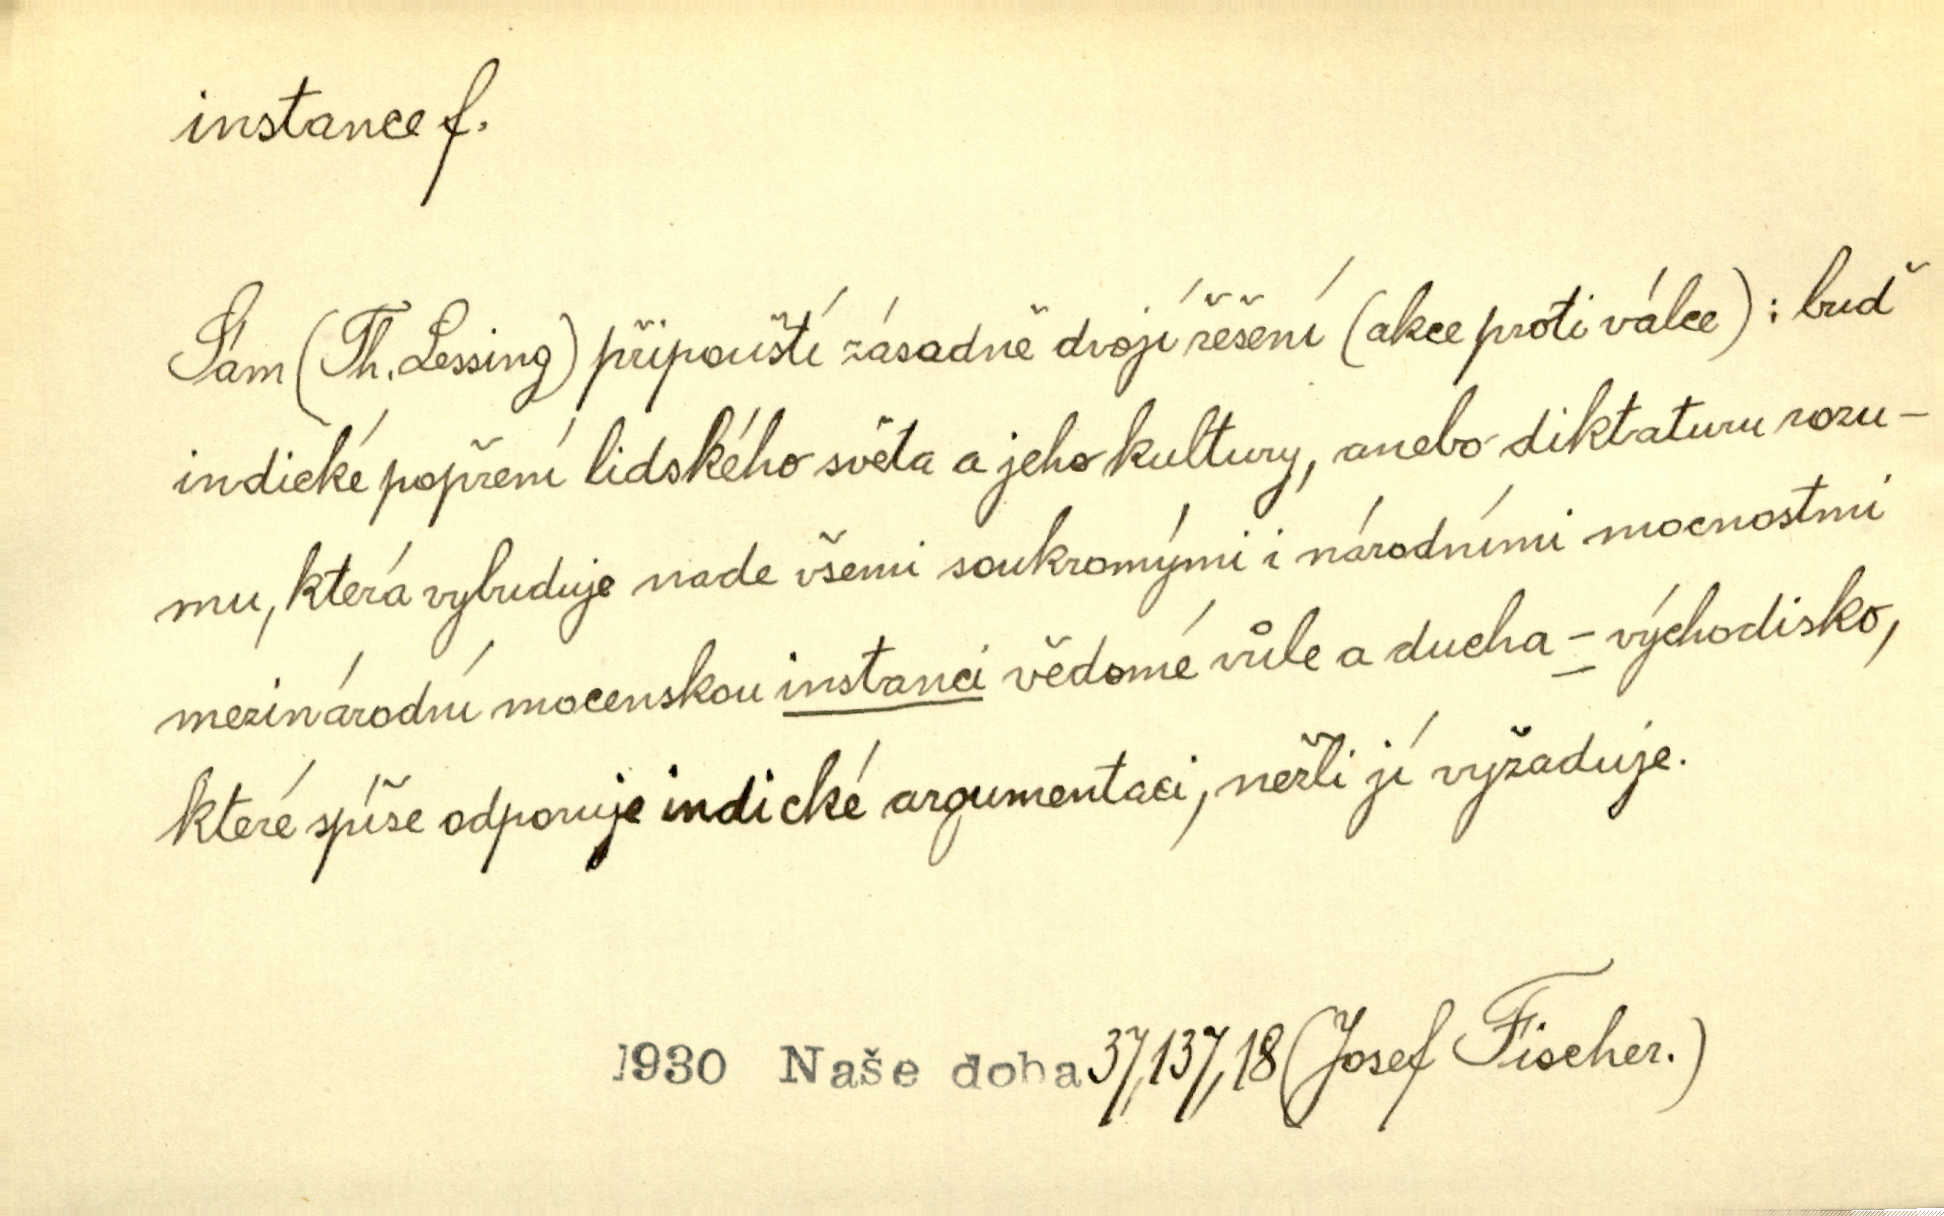 instance f.
Sám (Th. Lessing) připouští zásadně dvojí řešení (akce proti válce) : buď
indické popření lidského světa a jeho kultury, anebo diktaturu rozu-
mu, která vybuduje nade všemi soukromými i národními mocnostmi
mezinárodní mocenskou instanci vědomé vůle a ducha - východisko,
které spíše odporuje indické argumentaci, nežli jí vyžaduje.
1930 Naše doba 37, 137, 18 (Josef Fischer.)